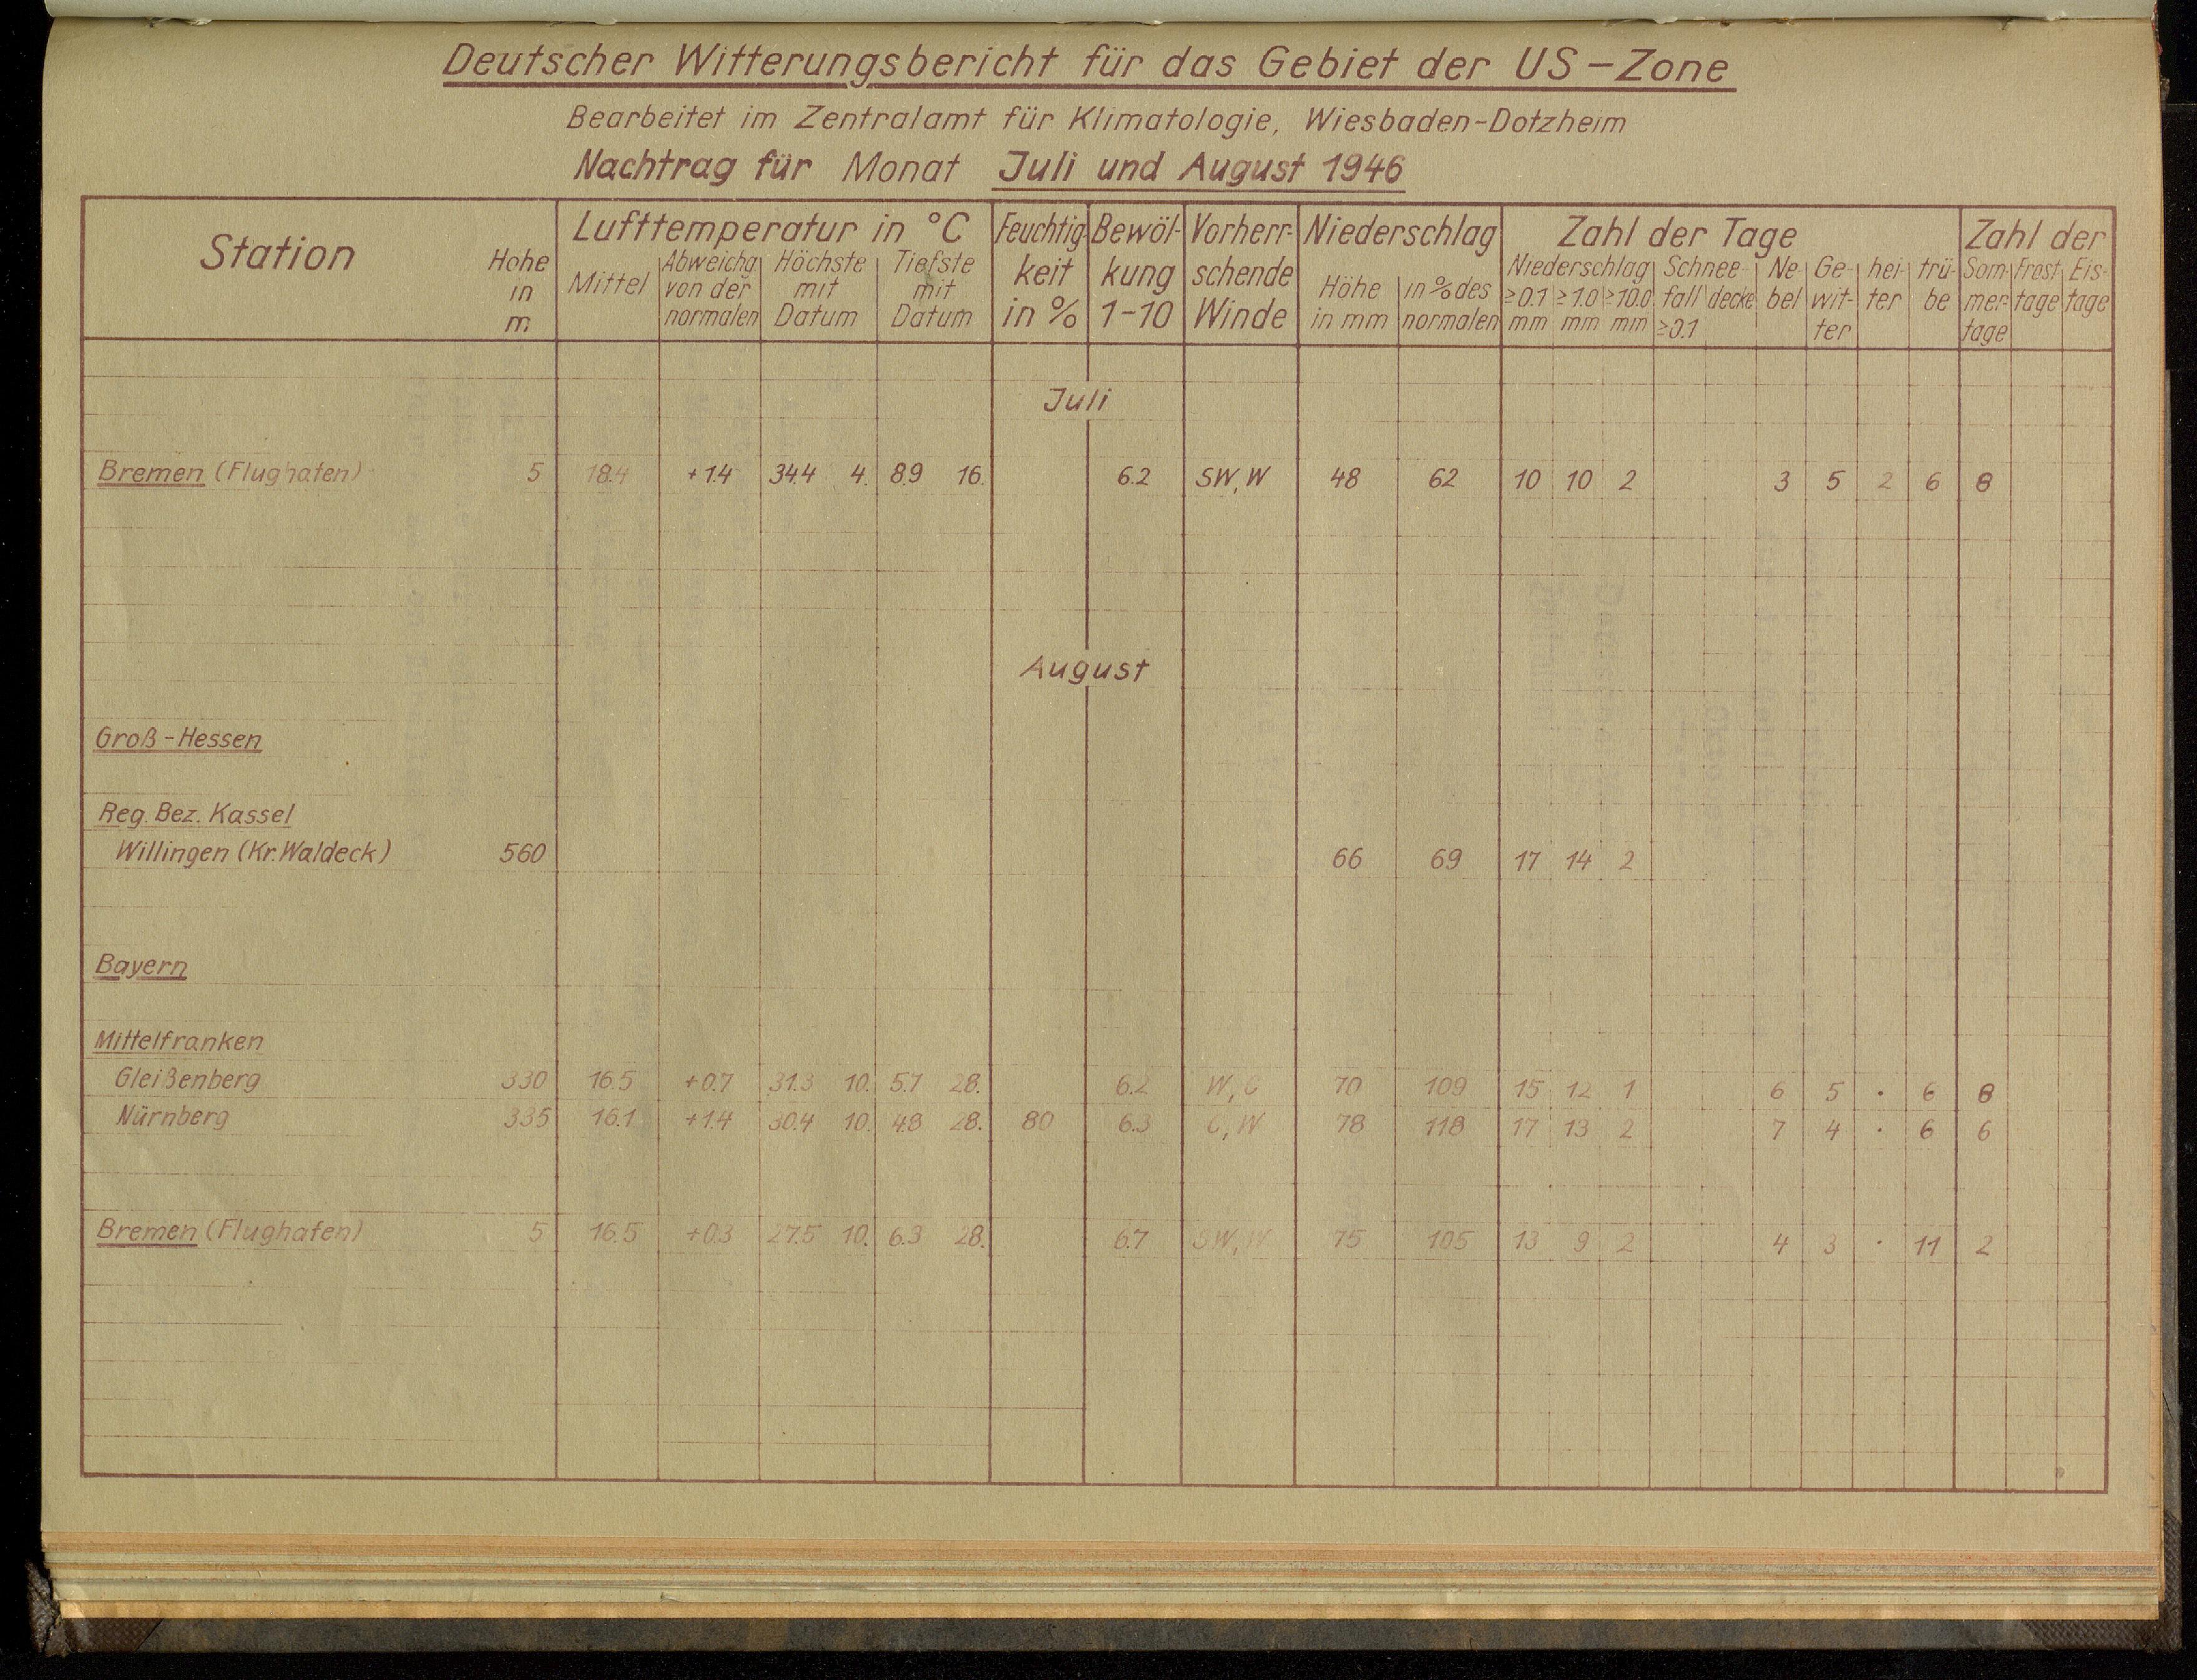 Deutscher Witterungsbericht für das Gebiet der US-Zone
Bearbeitet im Zentralamt für Klimatologie, Wiesbaden-Dotzheim
Nachtrag für Monat Juli und August 1946
Station
Höhe in m
Lufttemperatur in °C
Mittel
Abweichg. von der normalen
Höchste mit Datum
Tiefste mit Datum
Feuchtig-keit in %
Bewöl-kung 1-10
Vorherr-schende Winde
Niederschlag
Höhe in mm
in % des normalen
Zahl der Tage
Niederschlag
≥0.1 mm
≥1.0 mm
≥10.0 mm
Schnee-
fall ≥0.1
decke
Ne-bel
Ge-wit-ter
hei-ter
trü-be
Zahl der
Som-mer-tage
Frost tage
Eis-tage
Juli
Bremen (Flughafen) 5 18.4 +1.4 34.4 4. 8.9 16. 6.2 SW, W 48 62 10 10 2 3 5 2 6 8
August
Groß-Hessen
Reg. Bez. Kassel
Willingen (Kr. Waldeck) 560 66 69 17 14 2
Bayern
Mittelfranken
Gleißenberg 330 16.5 +0.7 31.3 10. 5.7 28. 6.2 W, C 70 109 15 12 1 6 5 . 6 8
Nürnberg 335 16.1 +1.4 30.4 10. 4.8 28. 80 6.3 C, W 78 118 17 13 2 7 4 . 6 6
Bremen (Flughafen) 5 16.5 +0.3 27.5 10. 6.3 28. 6.7 SW, W 75 105 13 9 2 4 3 . 11 2